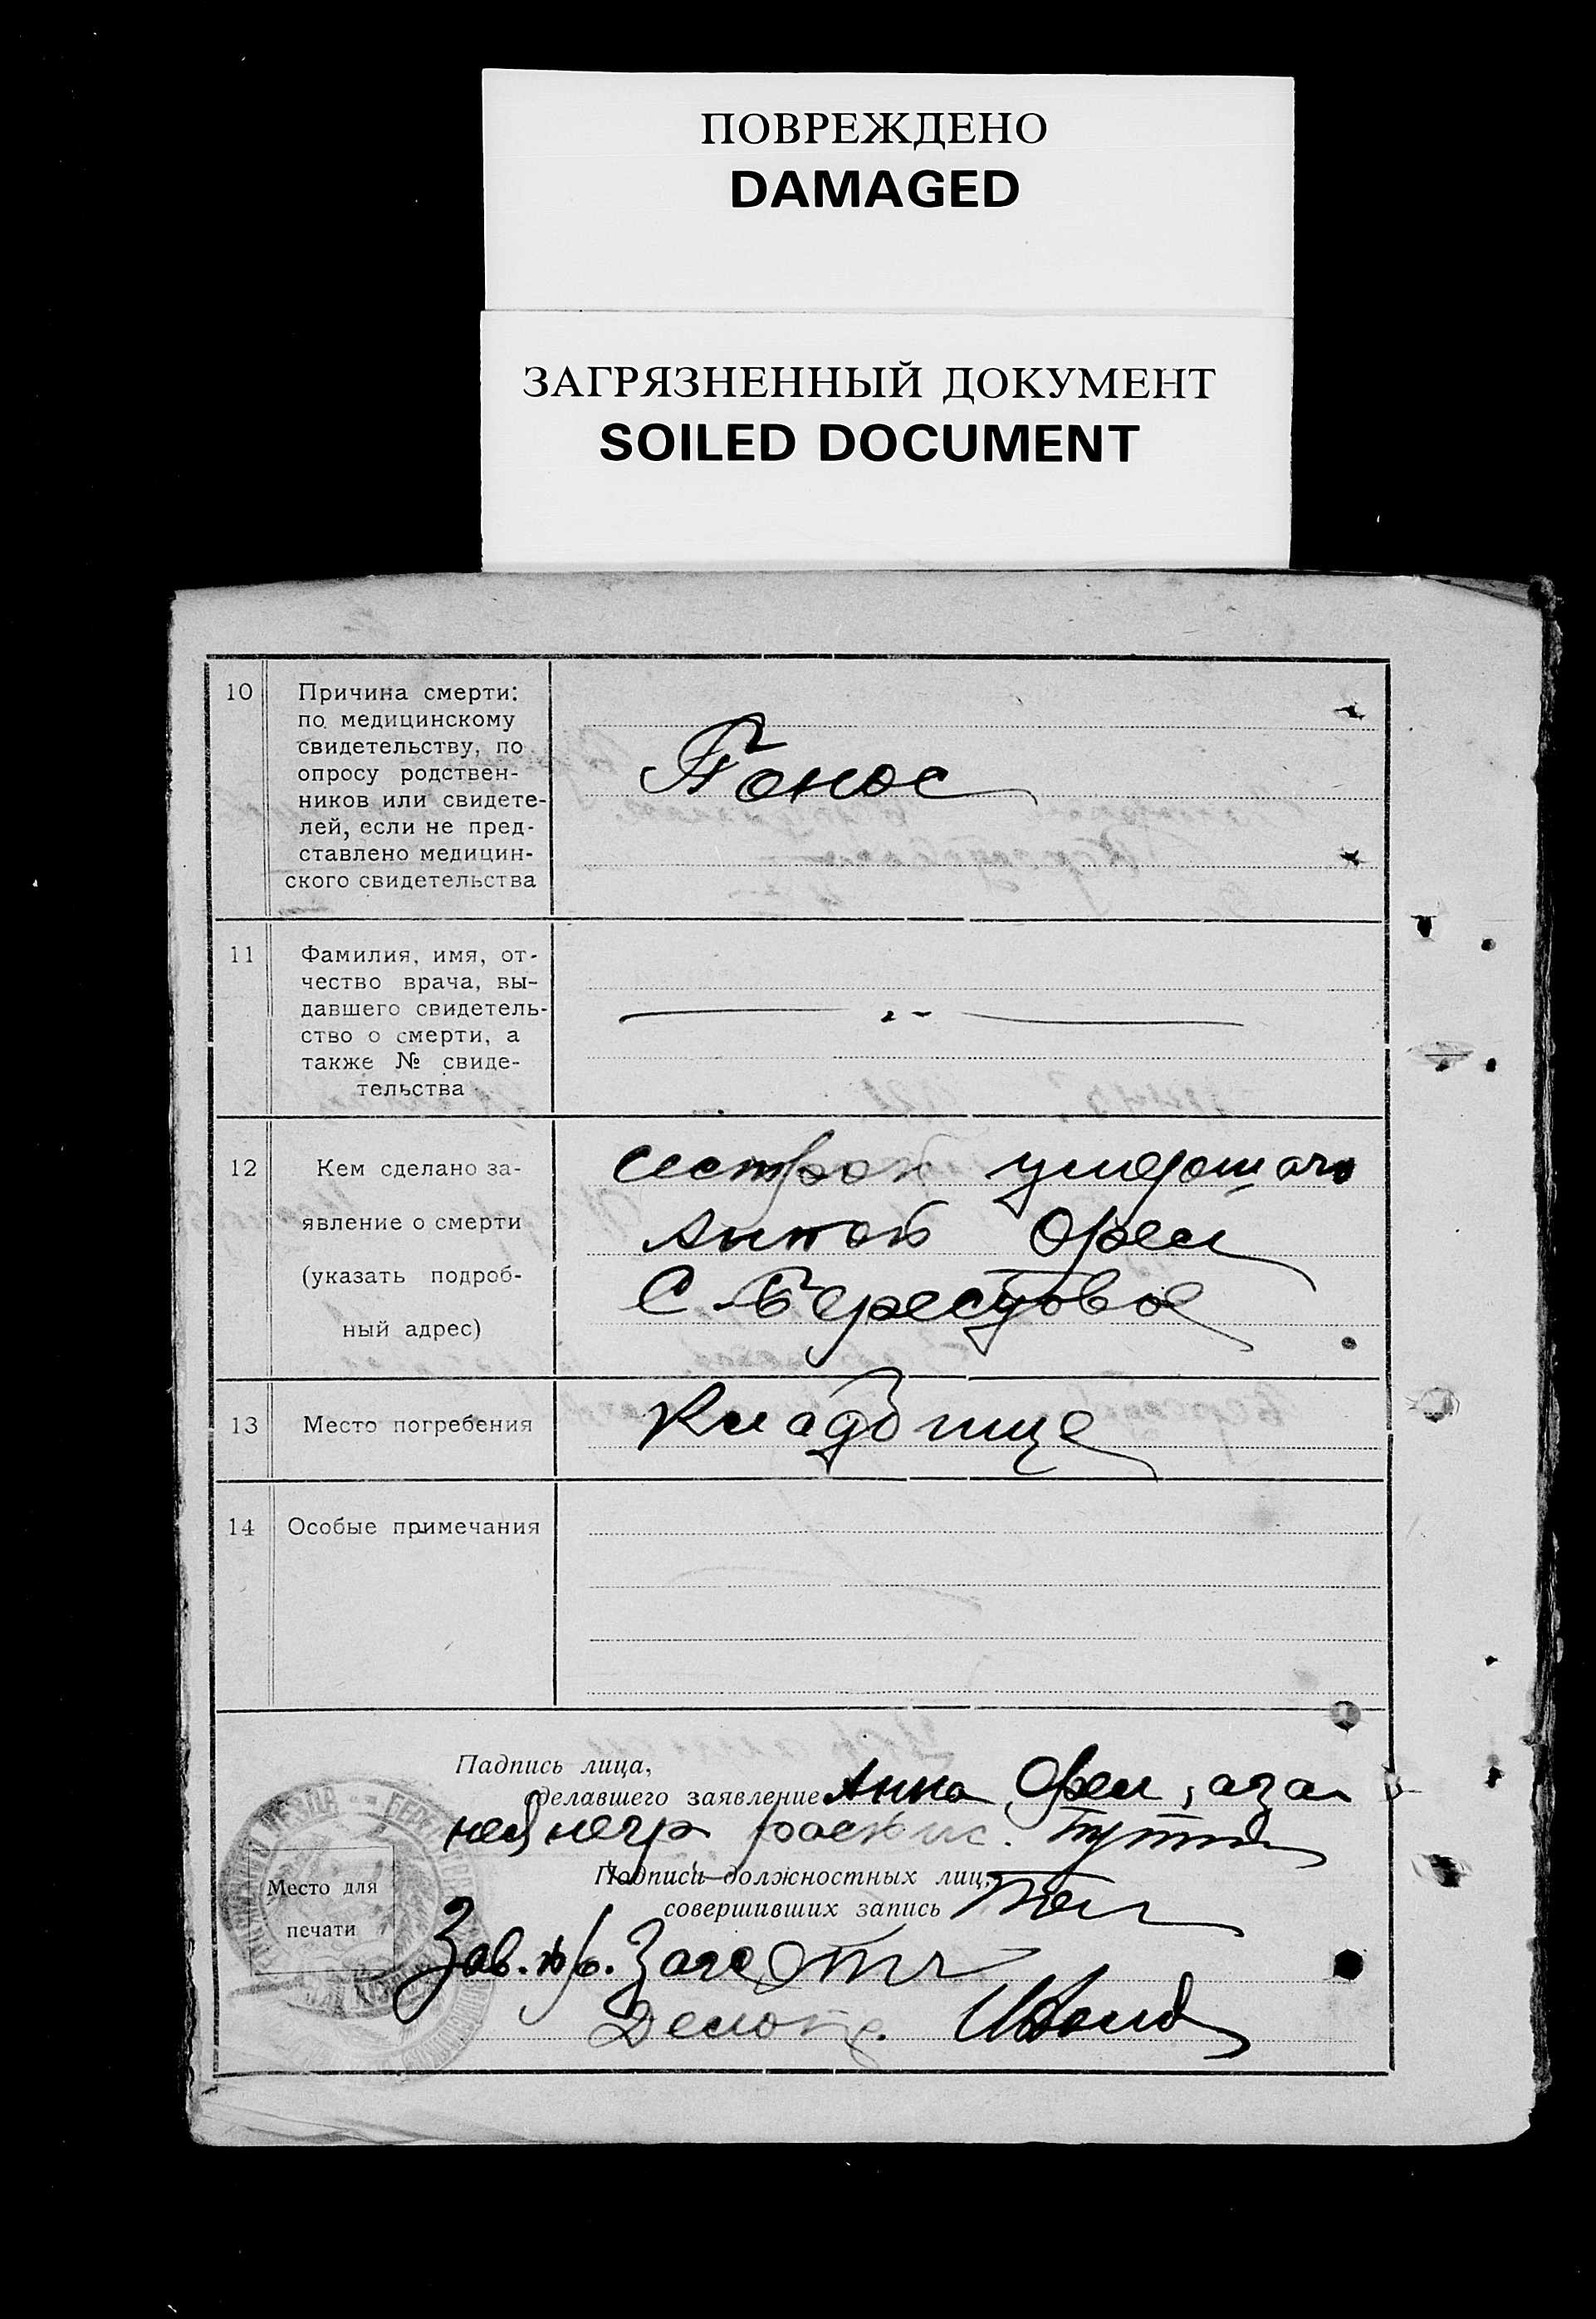 ПОВРЕЖДЕНО
DAMAGED
ЗАГРЯЗНЕННЫЙ ДОКУМЕНТ
SOILED DOCUMENT
10
Причина смерти:
по медицинскому
свидетельству, по
опросу родствен-
ников или свидете-
лей, если не пред-
ставлено медицин-
ского свидетельства
Понос
11
Фамилия, имя, от-
чество врача, вы-
давшего свидетель-
ство о смерти, а
также № свиде-
тельства
12
Кем сделано за-
явление о смерти
(указать подроб-
ный адрес)
сестрой умершаго
Анной Орел
С. Берестовое
13
Место погребения
Кладбище
14
Особые примечания
Падпись лица,
сделавшего заявление Анна Орел, аза
неё негр роспис.
Место для
печати
Подписи должностных лиц,
совершивших запись
Зав. Загс
Делопр.